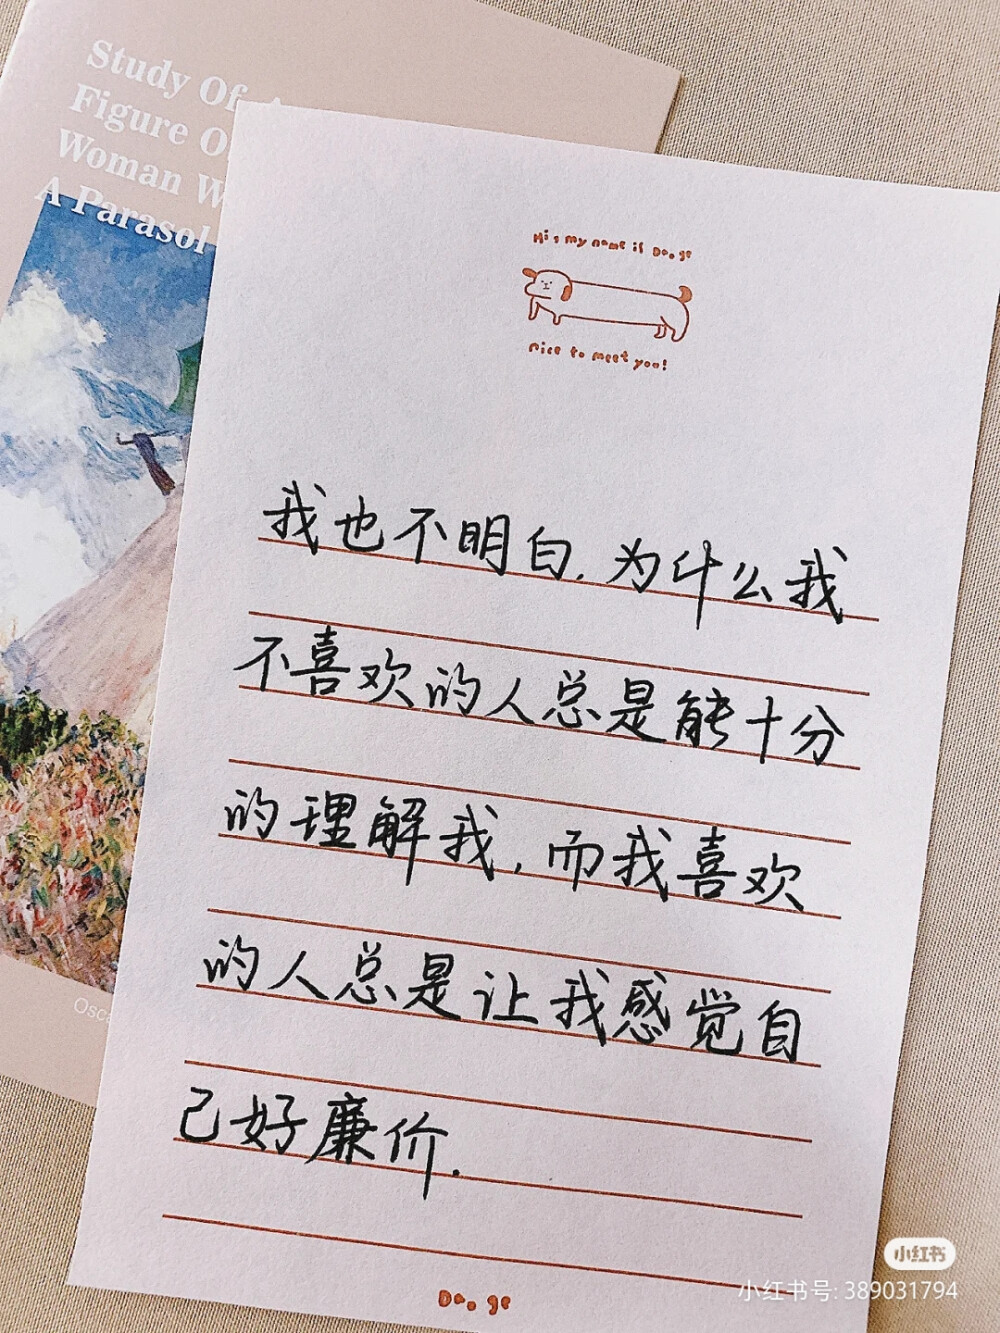 Study Of A
Figure O
Woman W
A Parasol
Hi, my name is Dao ge
Nice to meet you!
我也不明白.为什么我
不喜欢的人总是能十分
的理解我,而我喜欢
的人总是让我感觉自
己好廉价.
Osca
Dao ge
小红书
小红书号: 389031794